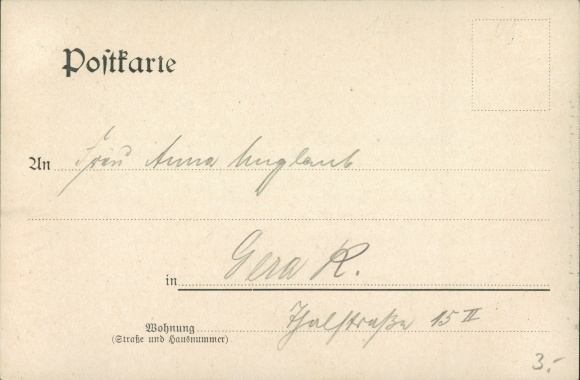 Postkarte
An Frau Anna Unglaub
in Gera R.
Wohnung Thalstraße 15 II
(Straße und Hausnummer)
3.-